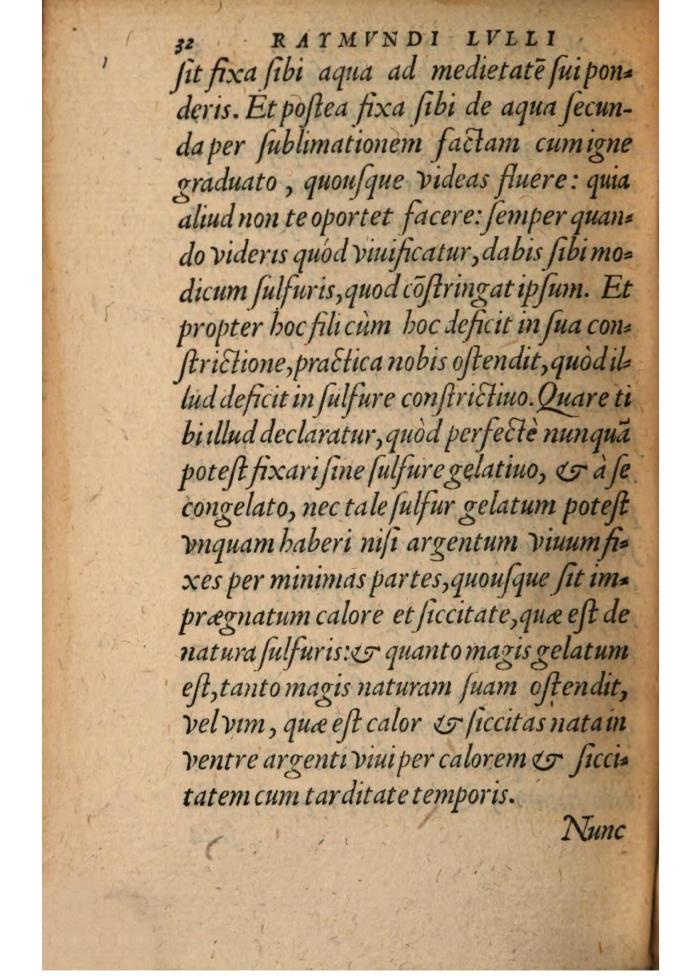 32 RAYMVNDI LVLLI
ſit fixa ſibi aqua ad medietatē ſui pon=
deris. Et poſtea fixa ſibi de aqua ſecun-
da per ſublimationem factam cum igne
graduato, quouſque videas fluere: quia
aliud non te oportet facere: ſemper quan=
do videris quòd viuificatur, dabis ſibi mo=
dicum ſulfuris, quod cōſtringat ipſum. Et
propter hoc fili cùm hoc deficit in ſua con=
ſtrictione, practica nobis oſtendit, quòd il=
lud deficit in ſulfure conſtrictiuo. Quare ti
bi illud declaratur, quòd perfectè nunquā
poteſt fixari ſine ſulfure gelatiuo, & à ſe
congelato, nec tale ſulfur gelatum poteſt
vnquam haberi niſi argentum viuum fi=
xes per minimas partes, quouſque ſit im=
prægnatum calore et ſiccitate, quæ eſt de
natura ſulfuris: & quanto magis gelatum
eſt, tanto magis naturam ſuam oſtendit,
vel vim, quæ eſt calor & ſiccitas nata in
ventre argenti viui per calorem & ſicci=
tatem cum tarditate temporis.
Nunc